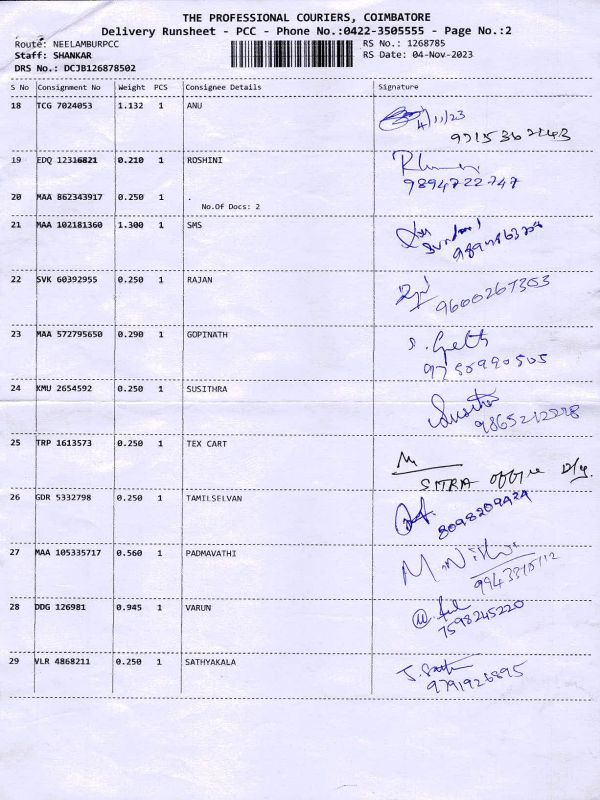 THE PROFESSIONAL COURIERS, COIMBATORE
Delivery Runsheet - PCC - Phone No.:0422-3505555 - Page No.:2
Route: NEELAMBURPCC RS No.: 1268785
Staff: SHANKAR RS Date: 04-Nov-2023
DRS No.: DCJB126878502
S No Consignment No Weight PCS Consignee Details Signature
18 TCG 7024053 1.132 1 ANU
4/11/23
19 EDQ 12316821 0.210 1 ROSHINI
9894722747
20 MAA 862343917 0.250 1 .
No.Of Docs: 2
21 MAA 102181360 1.300 1 SMS
22 SVK 60392955 0.250 1 RAJAN
9600267353
23 MAA 572795650 0.290 1 GOPINATH
24 KMU 2654592 0.250 1 SUSITHRA
25 TRP 1613573 0.250 1 TEX CART
SITRA office
26 GDR 5332798 0.250 1 TAMILSELVAN
8098209424
27 MAA 105335717 0.560 1 PADMAVATHI
28 DDG 126981 0.945 1 VARUN
7598245220
29 VLR 4868211 0.250 1 SATHYAKALA
9791926895